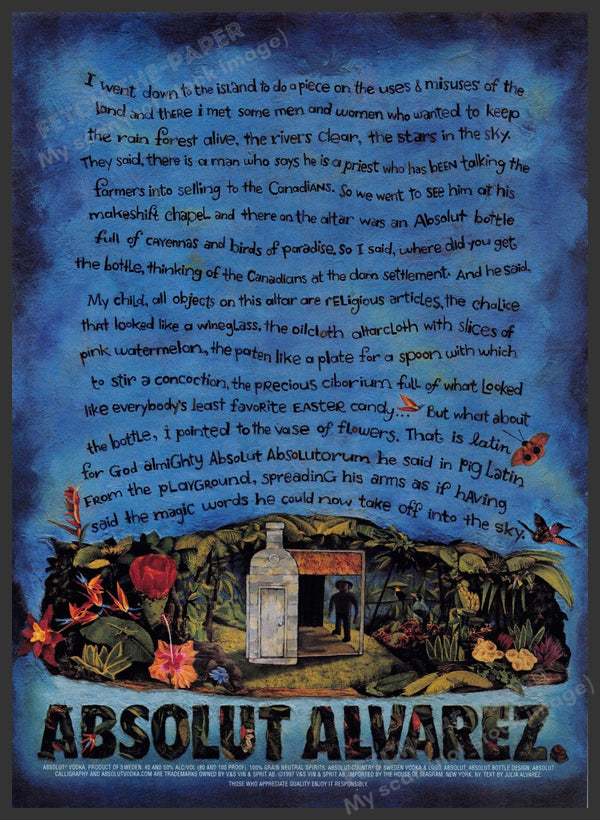 FETCH-THE-PAPER
My scan (not stock image)
I went down to the island to do a piece on the uses & misuses of the
land and there i met some men and women who wanted to keep
the rain forest alive, the rivers clear, the stars in the sky.
They said, there is a man who says he is a priest who has been talking the
farmers into selling to the Canadians. So we went to see him at his
makeshift chapel and there on the altar was an Absolut bottle
full of cayennas and birds of paradise. So I said, where did you get
the bottle, thinking of the Canadians at the dam settlement. And he said,
My child, all objects on this altar are religious articles, the chalice
that looked like a wineglass, the oilcloth altarcloth with slices of
pink watermelon, the paten like a plate for a spoon with which
to stir a concoction, the precious ciborium full of what looked
like everybody's least favorite Easter candy... But what about
the bottle, i pointed to the vase of flowers. That is latin
for God almighty Absolut Absolutorum he said in pig Latin
From the playground, spreading his arms as if having
said the magic words he could now take off into the sky.
ABSOLUT ALVAREZ.
ABSOLUT® VODKA, PRODUCT OF SWEDEN. 40 AND 50% ALC/VOL (80 AND 100 PROOF). 100% GRAIN NEUTRAL SPIRITS. ABSOLUT COUNTRY OF SWEDEN VODKA & LOGO, ABSOLUT, ABSOLUT BOTTLE DESIGN, ABSOLUT
CALLIGRAPHY AND ABSOLUTVODKA.COM ARE TRADEMARKS OWNED BY V&S VIN & SPRIT AB. ©1997 V&S VIN & SPRIT AB. IMPORTED BY THE HOUSE OF SEAGRAM, NEW YORK, NY. TEXT BY JULIA ALVAREZ.
THOSE WHO APPRECIATE QUALITY ENJOY IT RESPONSIBLY.
My scan image)